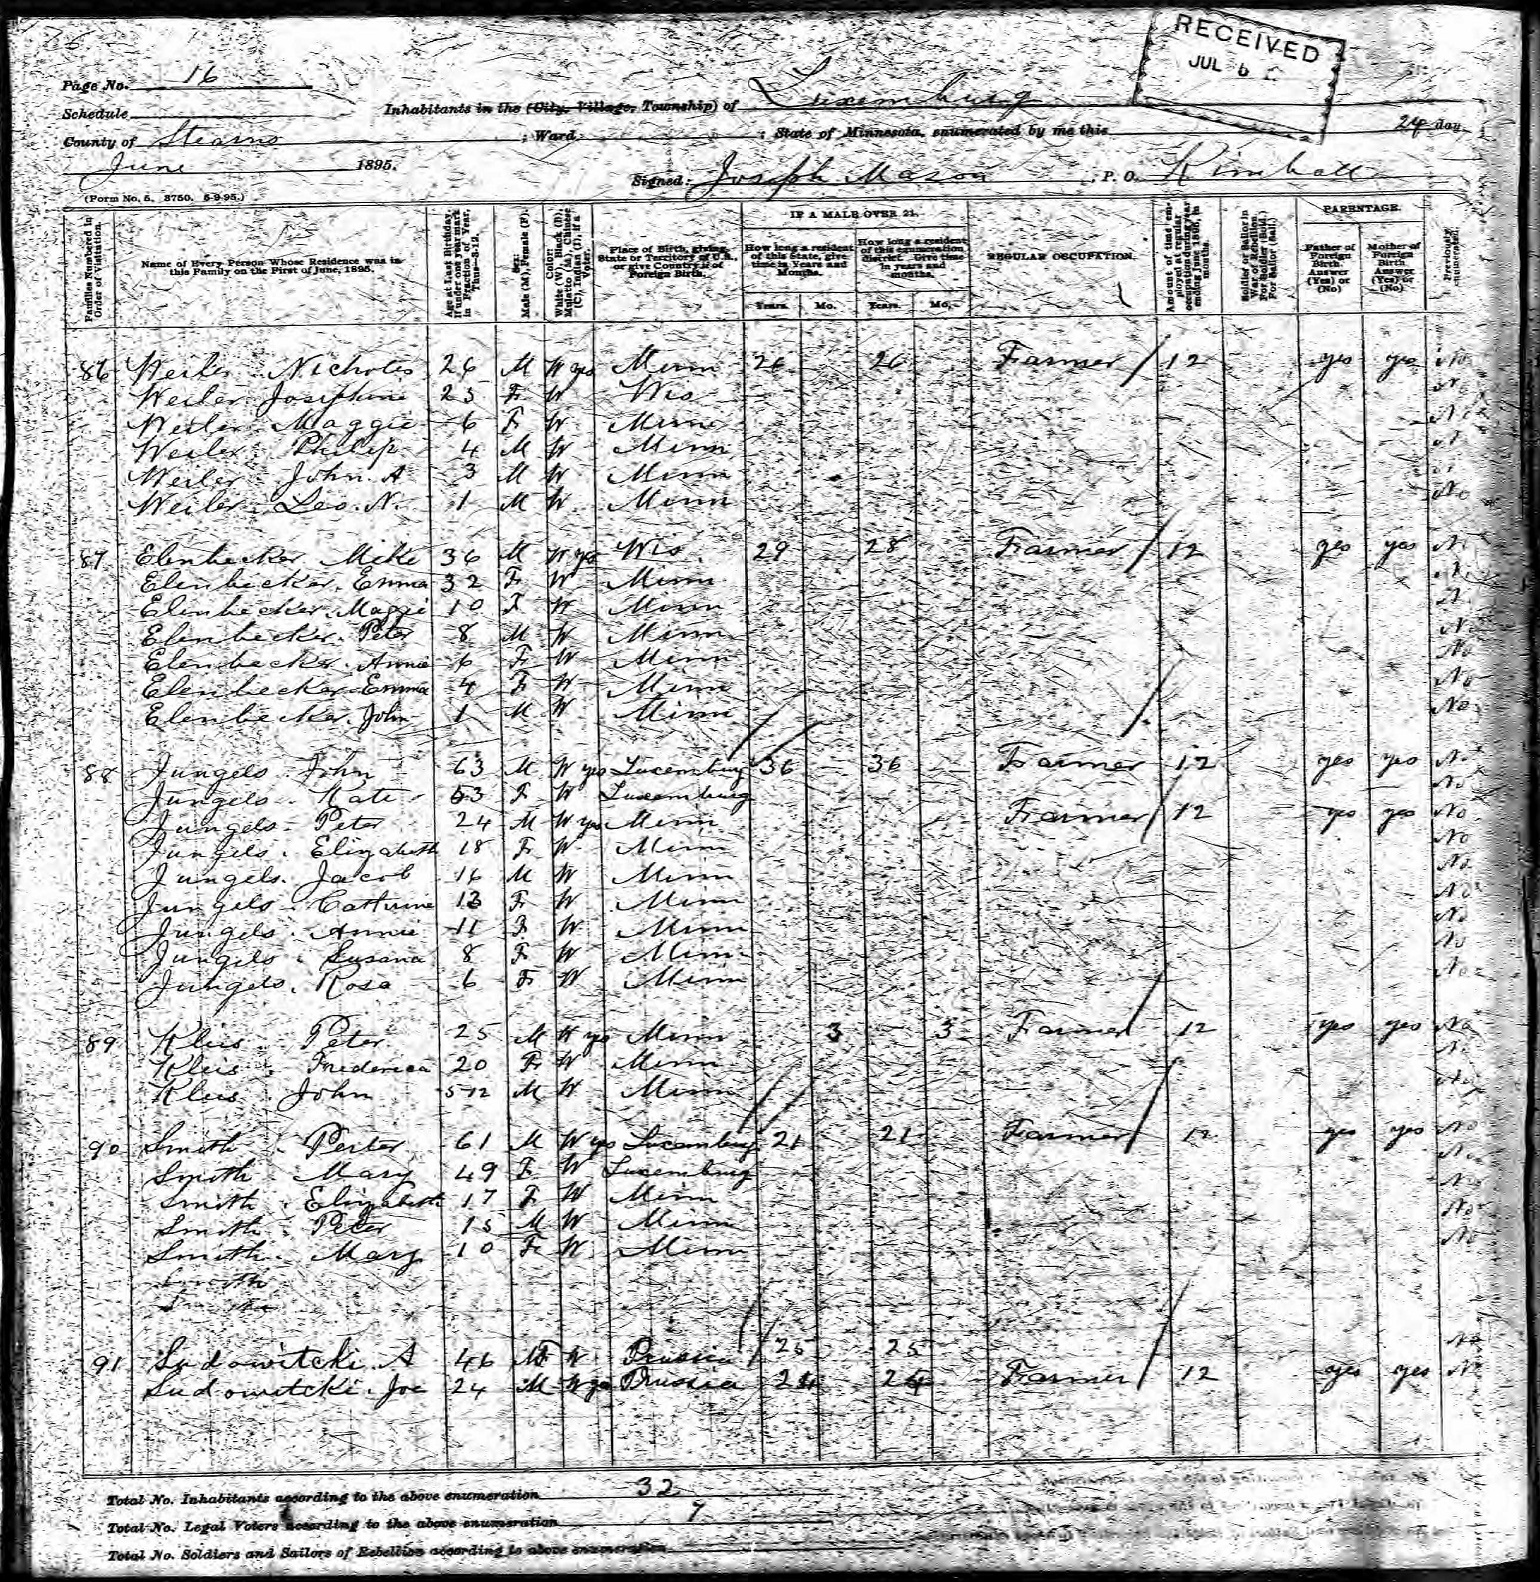 RECEIVED
JUL 6
Page No. 16
Schedule
Inhabitants in the (City, Village, Township) of Luxemburg
County of Stearns ; Ward ; State of Minnesota, enumerated by me this 24 day
June 1895.
Signed: Joseph Mason P. O. Kimball
(Form No. 5. 8750. 5-9-95.)
Families Numbered in Order of Visitation.
Name of Every Person Whose Residence was in this Family on the First of June, 1895.
Age at Last Birthday, if under one year mark in Fraction of Year, Thus—3-12.
Sex: Male (M), Female (F).
Color: White (W), Black (B), Mulatto (Mu), Chinese (C), Indian (I), if a Voter.
Place of Birth, giving State or Territory of U.S., or give Country if of Foreign Birth.
IF A MALE OVER 21.
How long a resident of this State, give time in Years and Months.
Years. Mo.
How long a resident of this enumeration district. Give time in years and months.
Years. Mo.
REGULAR OCCUPATION.
Soldier or Sailor in War of Rebellion.
PARENTAGE.
Father of Foreign Birth. Answer (Yes) or (No)
Mother of Foreign Birth. Answer (Yes) or (No)
Previously enumerated.
86 Weiler Nicholes 26 M W yes Minn 26 26 Farmer 12 yes yes No
Weiler Josephine 25 F W Wis
Weiler Maggie 6 F W Minn
Weiler Philip 4 M W Minn
Weiler John A 3 M W Minn
Weiler Leo. N. 1 M W Minn No
87 Elenbecker Mike 36 M W yes Wis 29 28 Farmer 12 yes yes
Elenbecker Emma 32 F W Minn
Elenbecker Maggie 10 F W Minn
Elenbecker Peter 8 M W Minn No
Elenbecker Annie 6 F W Minn No
Elenbecker Emma 4 F W Minn No
Elenbecker John 1 M W Minn No
88 Jungels John 63 M W yes Luxemburg 36 36 Farmer 12 yes yes No
Jungels Kate 53 F W Luxemburg No
Jungels Peter 24 M W yes Minn Farmer 12 yes yes No
Jungels Elizabeth 18 F W Minn No
Jungels Jacob 16 M W Minn No
Jungels Cathrine 13 F W Minn No
Jungels Annie 11 F W Minn No
Jungels Susana 8 F W Minn No
Jungels Rosa 6 F W Minn No
89 Kleis Peter 25 M W yes Minn 3 3 Farmer 12 yes yes No
Kleis Frederica 20 F W Minn
Kleis John 5-12 M W Minn No
90 Smith Perter 61 M W yes Luxemburg 21 21 Farmer 12 yes yes No
Smith Mary 49 F W Luxemburg No
Smith Elizabeth 17 F W Minn No
Smith Peter 15 M W Minn No
Smith Mary 10 F W Minn No
Smith
Smith
91 Ludowitcki A 46 F W Prussia 25 25 No
Ludowitcki Joe 24 M W yes Prussia 24 24 Farmer 12 yes yes No
Total No. Inhabitants according to the above enumeration 32
Total No. Legal Voters according to the above enumeration 7
Total No. Soldiers and Sailors of Rebellion according to above enumeration